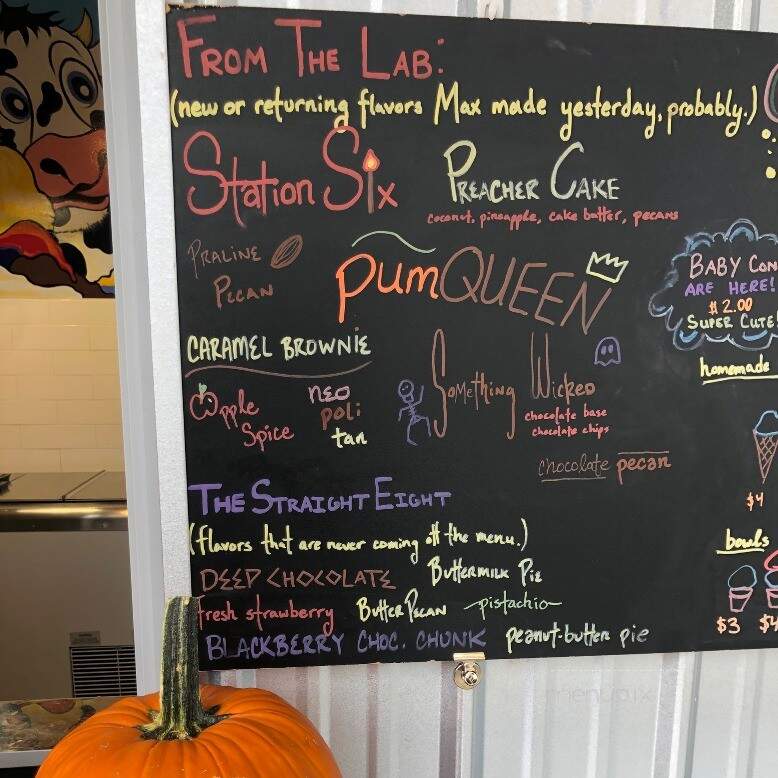 FROM THE LAB:
(new or returning flavors Max made yesterday, probably.)
Station Six
PREACHER CAKE
coconut, pineapple, cake batter, pecans
PRALINE
PECAN
PumQUEEN
BABY CON
ARE HERE!
$2.00
SUPER CUTE!
CARAMEL BROWNIE
Something Wicked
chocolate base
chocolate chips
homemade
Apple
Spice
neo
poli
tan
chocolate pecan
$4
THE STRAIGHT EIGHT
(flavors that are never coming off the menu.)
DEEP CHOCOLATE
Buttermilk Pie
bowls
fresh strawberry
Butter Pecan
pistachio
BLACKBERRY CHOC. CHUNK
peanut-butter pie
$3
$4
menupix